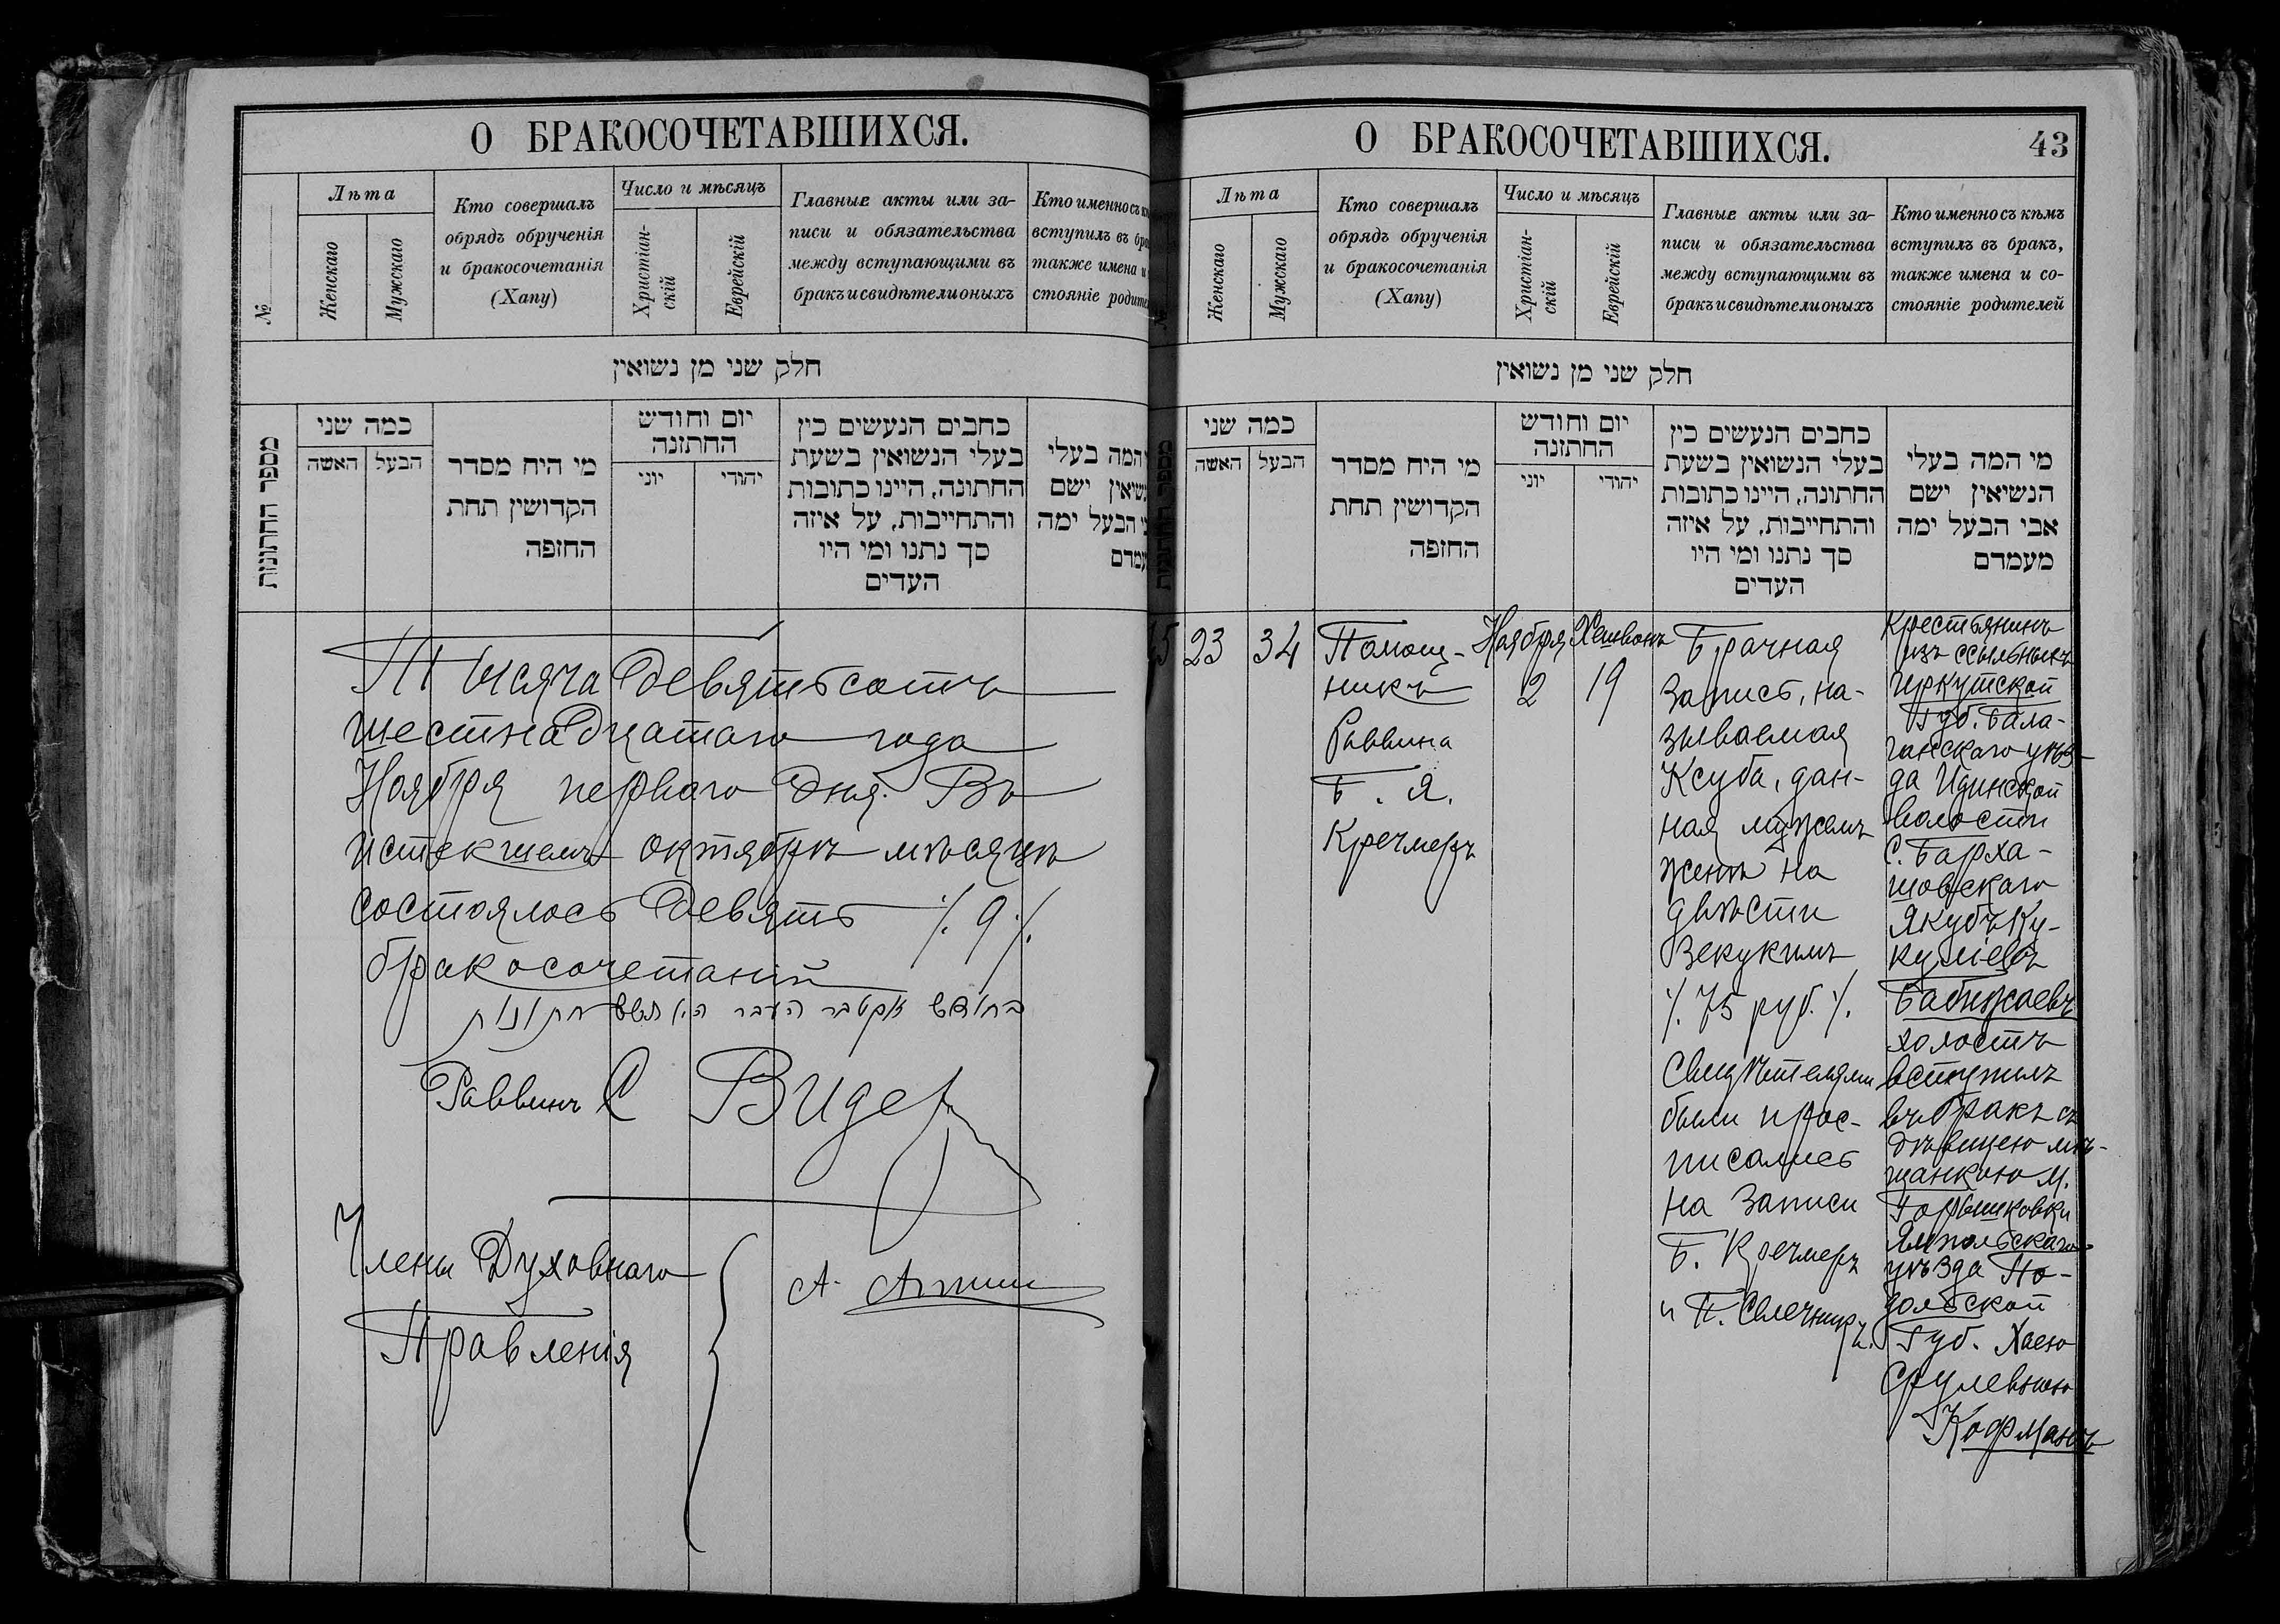 О БРАКОСОЧЕТАВШИХСЯ.
№
Лѣта
Женскаго
Мужскаго
Кто совершалъ
обрядъ обрученія
и бракосочетанія
(Хапу)
Число и мѣсяцъ
Христіан-
скій
Еврейскій
Главные акты или за-
писи и обязательства
между вступающими въ
бракъ и свидѣтели оныхъ
Кто именно съ
вступилъ въ
также имена и
стояніе
חלק שני מן נשואין
מספר החתונות
כמה שני
האשה
הבעל
מי היה מסדר
הקדושין תחת
החופה
יום וחודש
החתונה
יוני
יהודי
כתבים הנעשים בין
בעלי הנשואין בשעת
החתונה, היינו כתובות
והתחייבות, על איזה
סך נתנו ומי היו
העדים
המה בעלי
ישם
הבעל ימה
Тысяча девятьсотъ
шестнадцатаго года
Ноября перваго дня. Въ
истекшемъ октябрѣ мѣсяцѣ
состоялось девять ./. 9 ./.
бракосочетаній
בחודש אקטבר העבר היו תשע חתונות
Раввинъ С Видер
Члены Духовнаго
Правленія
А.
О БРАКОСОЧЕТАВШИХСЯ.
43
Лѣта
Женскаго
Мужскаго
Кто совершалъ
обрядъ обрученія
и бракосочетанія
(Хапу)
Число и мѣсяцъ
Христіан-
скій
Еврейскій
Главные акты или за-
писи и обязательства
между вступающими въ
бракъ и свидѣтели оныхъ
Кто именно съ кѣмъ
вступилъ въ бракъ,
также имена и со-
стояніе родителей
חלק שני מן נשואין
כמה שני
האשה
הבעל
מי היה מסדר
הקדושין תחת
החופה
יום וחודש
החתונה
יוני
יהודי
כתבים הנעשים בין
בעלי הנשואין בשעת
החתונה, היינו כתובות
והתחייבות, על איזה
סך נתנו ומי היו
העדים
מי המה בעלי
הנשיאין ישם
אבי הבעל ימה
מעמדם
23
34
Помощ-
никъ
Раввина
Б. Я.
Кречмеръ
Ноября
2
Хешвонъ
19
Брачная
запись, на-
зываемая
Ксуба, дан-
ная мужемъ
женѣ на
двѣсти
Зекукимъ
./. 75 руб. ./.
Свидѣтелями
были и рос-
писались
на записи
Б. Кречмеръ
и П. Свечникъ.
Крестьянинъ
изъ ссыльныхъ
Иркутской
Губ. Бала-
ганскаго уѣз-
да Идинской
волости
с. Бархa-
товскаго
Якубъ Ку-
куліевъ
Бабижаевъ
холостъ
вступилъ
въ бракъ съ
дѣвицею мѣ-
щанкою м.
Горышковки
Ямпольскаго
уѣзда По-
дольской
Губ. Хаею
Срулевною
Кофманъ